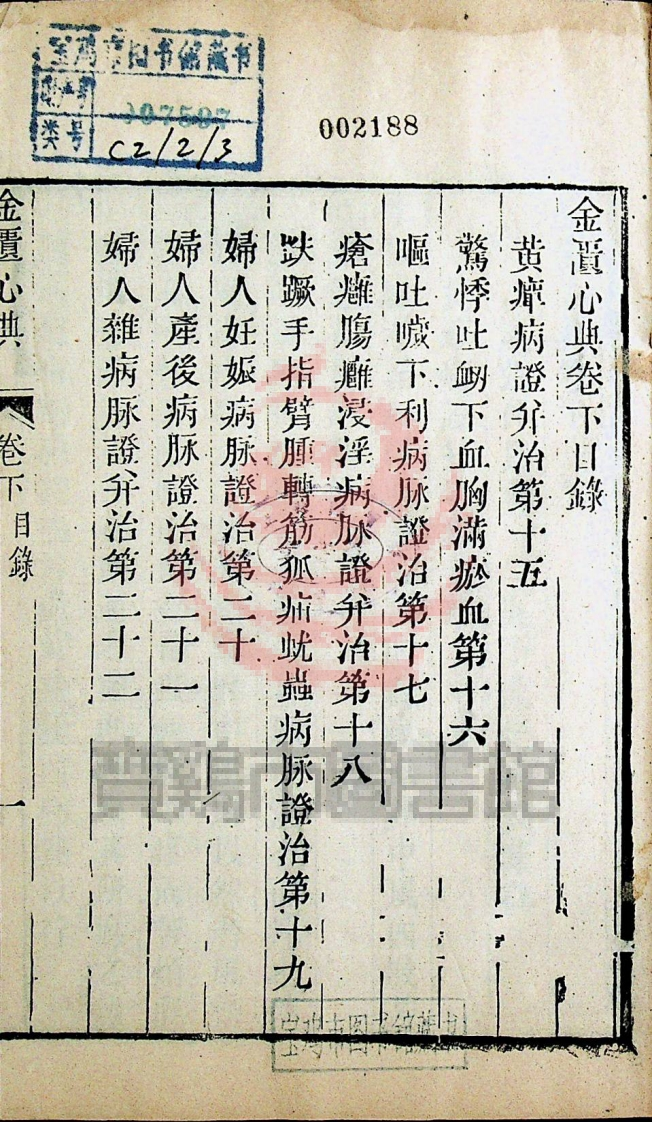 宝鸡市图书馆藏书
类号
C2/2/3
002188
金匱心典卷下目錄
黄癉病證并治第十五
驚悸吐衂下血胸滿瘀血第十六
嘔吐噦下利病脉證治第十七
瘡癰腸癰浸淫病脉證并治第十八
趺蹶手指臂腫轉筋狐疝蚘蟲病脉證治第十九
婦人妊娠病脉證治第二十
婦人產後病脉證治第二十一
婦人雜病脉證并治第二十二
金匱心典
卷下
目錄
一
寶鷄市圖書館
宝鸡市图书馆藏书